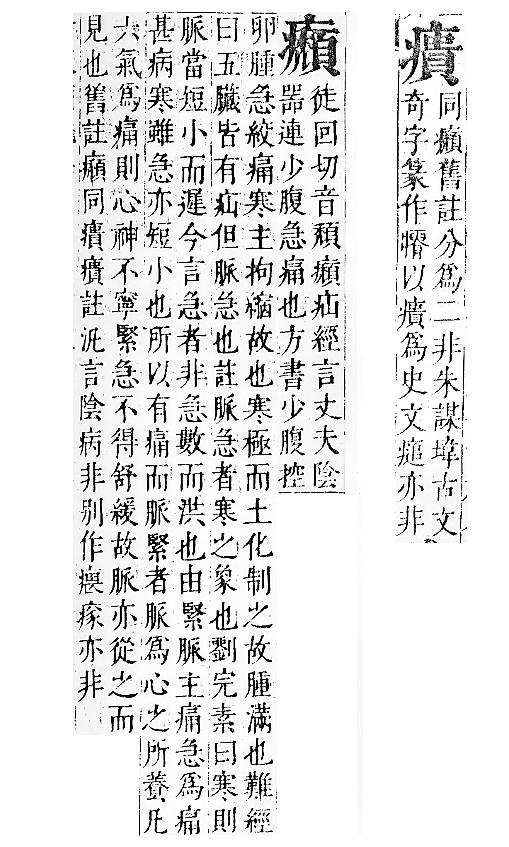 㿉
同㿗舊註分爲二非朱謀㙔古文
奇字篆作以㿉爲史文亦非
㿗
徒回切音頹㿗疝經言丈夫陰
器連少腹急痛也方書少腹控
卵腫急絞痛寒主拘縮故也寒極而土化制之故腫滿也難經
曰五臟皆有疝但脈急也註脈急者寒之象也劉完素曰寒則
脈當短小而遲今言急者非急數而洪也由緊脈主痛急爲痛
甚病寒雖急亦短小也所以有痛而脈緊者脈爲心之所養凡
六氣爲痛則心神不寧緊急不得舒緩故脈亦從之而
見也舊註㿗同㿉㿉註汎言陰病非別作亦非